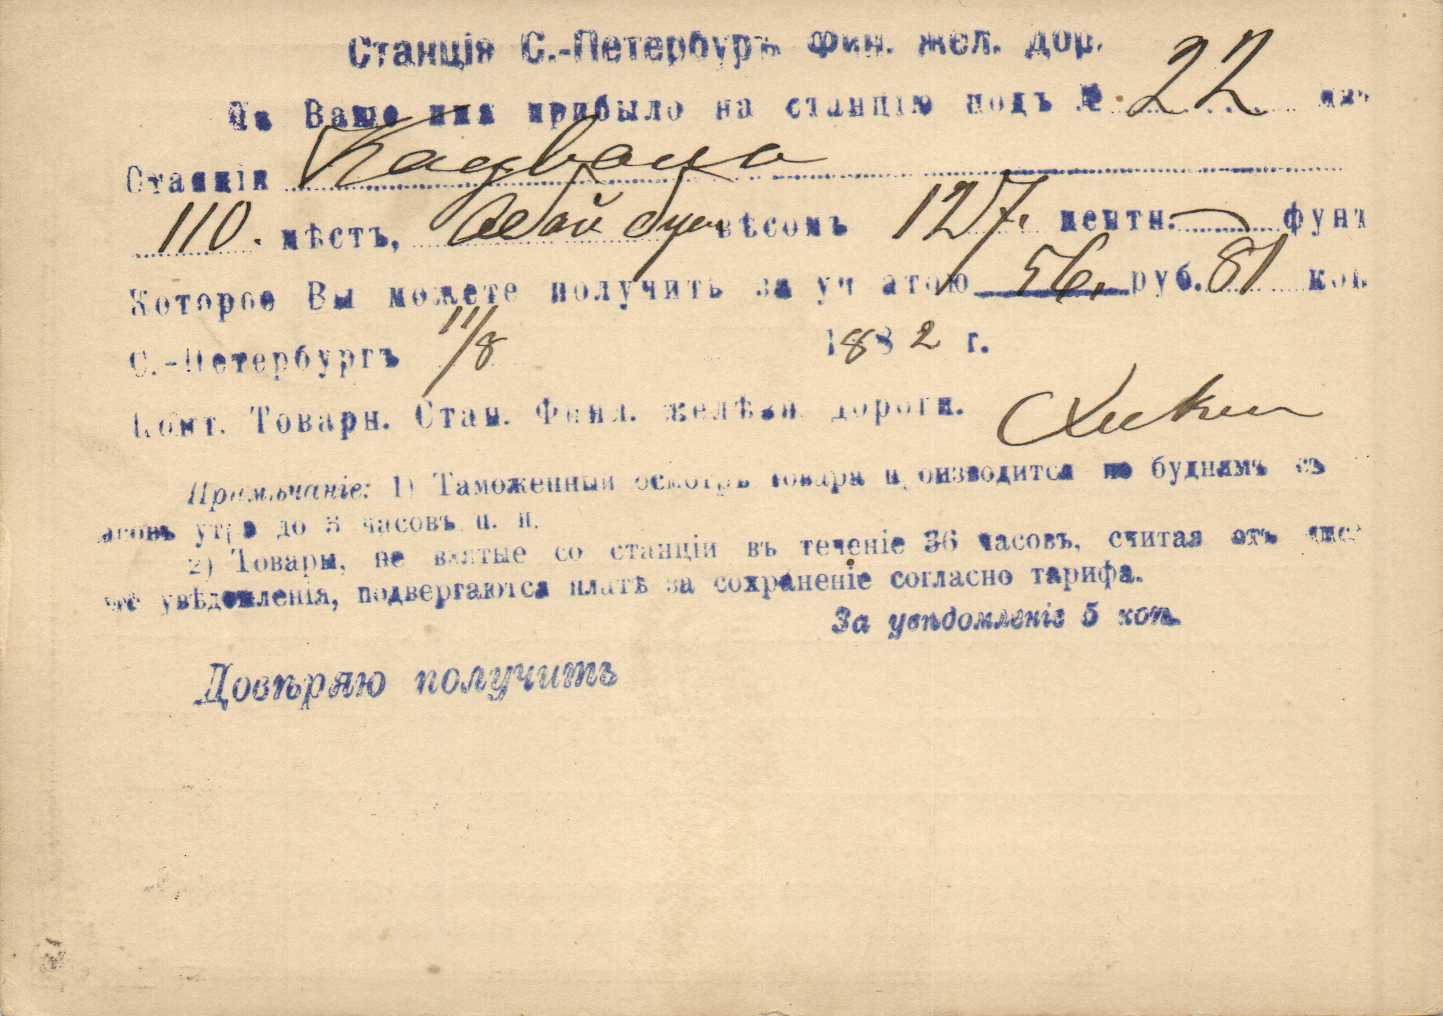 Станція С.-Петербургъ Фин. жел. дор.
На Ваше имя прибыло на станцію подъ № 22
Станціи
110. мѣстъ, вѣсомъ 127. центн. — фунт
Которое Вы можете получить за уплатою 56. руб. 81 коп.
С.-Петербургъ 11/8 1882 г.
Конт. Товарн. Стан. Финл. желѣзн. дороги.
Примѣчаніе: 1) Таможенный осмотръ товара производится по буднямъ съ
часовъ утра до 3 часовъ п. п.
2) Товары, не взятые со станціи въ теченіе 36 часовъ, считая отъ
увѣдомленія, подвергаются платѣ за сохраненіе согласно тарифа.
За увѣдомленіе 5 коп.
Довѣряю получить